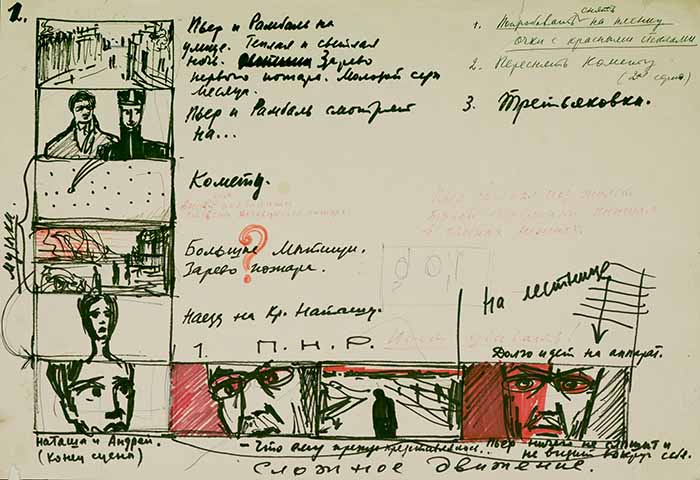 1.
Пьер и Рамбаль на
улице. Теплая и светлая
ночь. Зарево
первого пожара. Молодой серп
месяца.
Пьер и Рамбаль смотрят
на...
Комету.
Большие Мытищи.
Зарево пожара.
?
Наезд на Кр. Наташу.
1. П.Н.Р.
музыка
1. Попробовать снять на пленку
очки с красными стеклами
2. Переснять Комету
(2ая серия)
3. Третьяковка.
На лестнице
Долго идет на аппарат.
Наташа и Андрей -
(конец сцены)
- Что ему
Пьер ничего не слышит и
не видит вокруг себя.
Сложное движение.